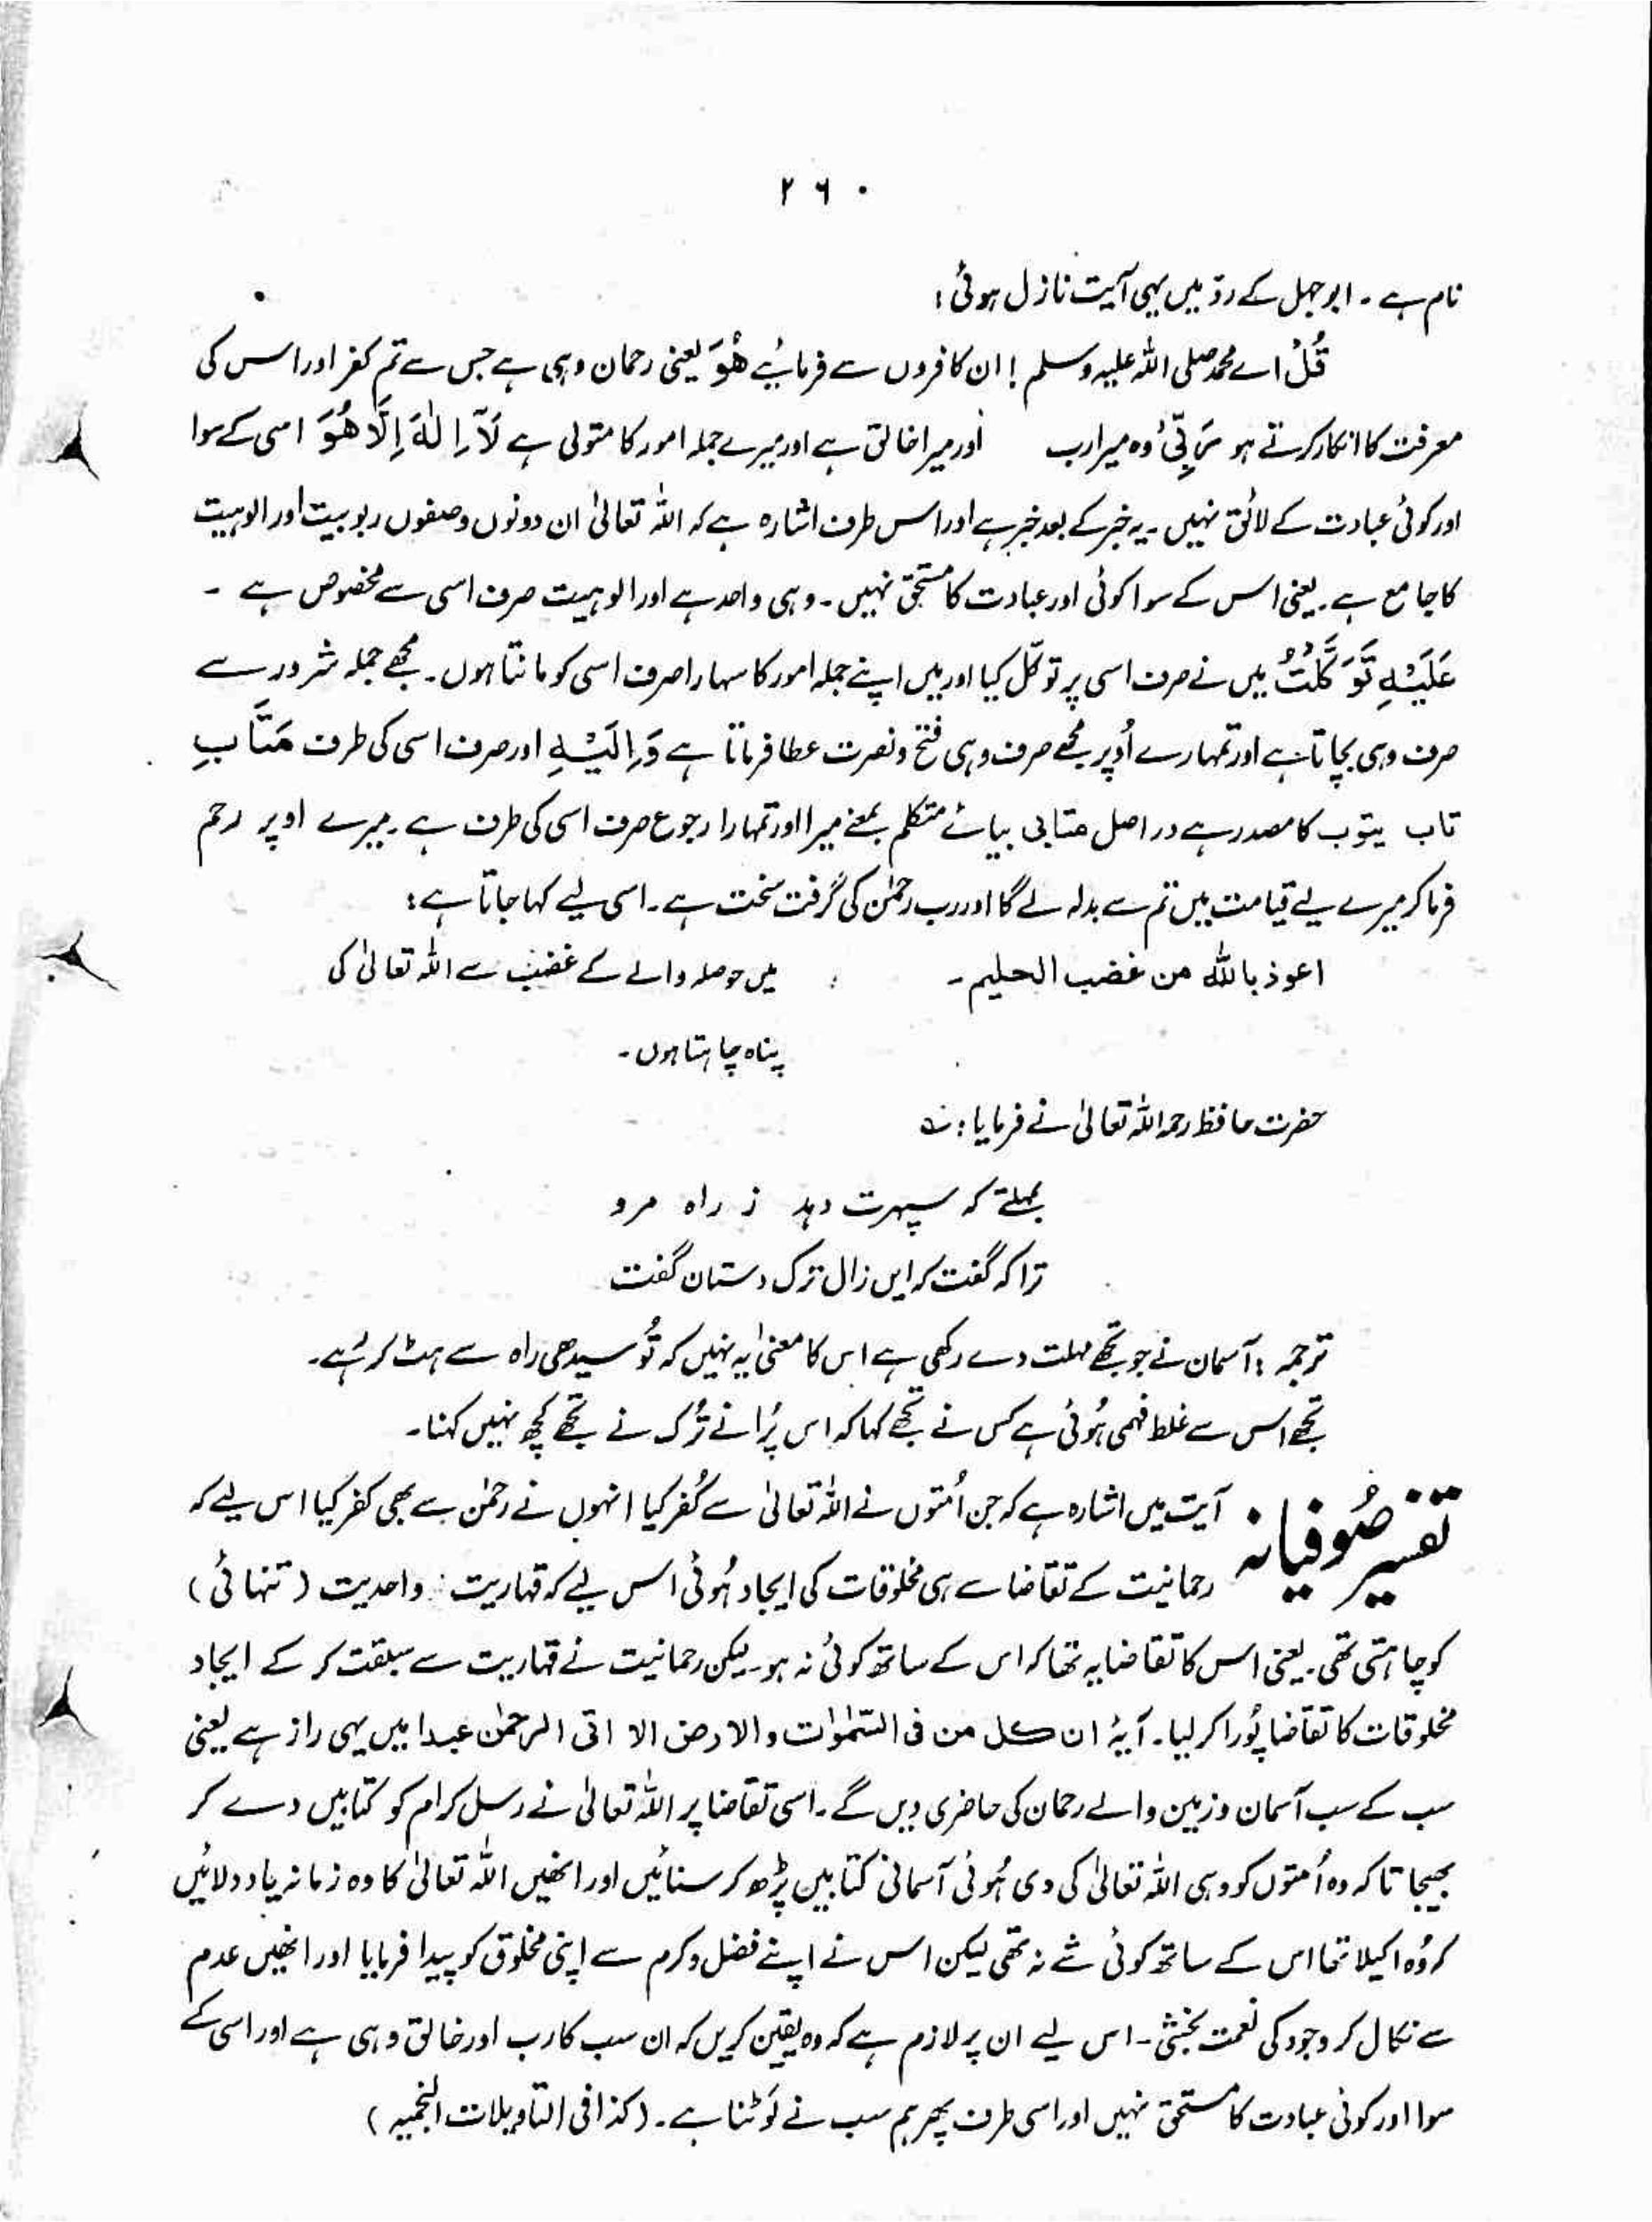 ۲۶۰
نام ہے ۔ ابوجہل کے ردّ میں یہی آیت نازل ہوئی :
قُلْ اے محمد صلی اللہ علیہ وسلم ! ان کافروں سے فرمائیے هُوَ یعنی رحمان وہی ہے جس سے تم کفر اور اس کی
معرفت کا انکار کرتے ہو رَبِّیْ وہ میرا رب اور میرا خالق ہے اور میرے جملہ امور کا متولی ہے لَآ اِلٰهَ اِلَّا هُوَ اسی کے سوا
اور کوئی عبادت کے لائق نہیں ۔ یہ خبر کے بعد خبر ہے اور اس طرف اشارہ ہے کہ اللہ تعالیٰ ان دونوں وصفوں ربوبیت اور الوہیت
کا جامع ہے ۔ یعنی اس کے سوا کوئی اور عبادت کا مستحق نہیں ۔ وہی واحد ہے اور الوہیت صرف اسی سے مخصوص ہے ۔
عَلَیْهِ تَوَكَّلْتُ میں نے صرف اسی پر توکّل کیا اور میں اپنے جملہ امور کا سہارا صرف اسی کو مانتا ہوں ۔ مجھے جملہ شرور سے
صرف وہی بچاتا ہے اور تمہارے اُوپر مجھے صرف وہی فتح و نصرت عطا فرماتا ہے وَ اِلَیْهِ اور صرف اسی کی طرف مَتَابِ
تاب یتوب کا مصدر ہے در اصل متابی بیائے متکلم بمعنے میرا اور تمہارا رجوع صرف اسی کی طرف ہے ۔ میرے اوپر رحم
فرما کر میرے لیے قیامت میں تم سے بدلہ لے گا اور رب رحمٰن کی گرفت سخت ہے ۔ اسی لیے کہا جاتا ہے :
اعوذ باللہ من غضب الحلیم ۔ میں حوصلہ والے کے غضب سے اللہ تعالیٰ کی
پناہ چاہتا ہوں ۔
حضرت حافظ رحمہ اللہ تعالیٰ نے فرمایا : ؎
بمہلتے کہ سپہرت دہد ز راہ مرو
ترا کہ گفت کہ ایں زال ترک دستان گفت
ترجمہ : آسمان نے جو تجھے مہلت دے رکھی ہے اس کا معنیٰ یہ نہیں کہ تُو سیدھی راہ سے ہٹ کر رہے ۔
تجھے اس سے غلط فہمی ہُوئی ہے کس نے تجھے کہا کہ اس پُرانے تُرک نے تجھے کچھ نہیں کہنا ۔
تفسیر صُوفیانہ آیت میں اشارہ ہے کہ جن اُمتوں نے اللہ تعالیٰ سے کُفر کیا انہوں نے رحمٰن سے بھی کفر کیا اس لیے کہ
رحمانیت کے تقاضا سے ہی مخلوقات کی ایجاد ہُوئی اس لیے کہ قہاریت واحدیت ( تنہائی )
کو چاہتی تھی ۔ یعنی اس کا تقاضا یہ تھا کہ اس کے ساتھ کوئی نہ ہو ۔ لیکن رحمانیت نے قہاریت سے سبقت کر کے ایجاد
مخلوقات کا تقاضا پُورا کر لیا ۔ آیۂ ان کل من فی السمٰوٰت والارض الا اتی الرحمٰن عبدا میں یہی راز ہے یعنی
سب کے سب آسمان و زمین والے رحمان کی حاضری دیں گے ۔ اسی تقاضا پر اللہ تعالیٰ نے رسل کرام کو کتابیں دے کر
بھیجا تاکہ وہ اُمتوں کو وہی اللہ تعالیٰ کی دی ہُوئی آسمانی کتابیں پڑھ کر سنائیں اور انھیں اللہ تعالیٰ کا وہ زمانہ یاد دلائیں
کہ وُہ اکیلا تھا اس کے ساتھ کوئی شے نہ تھی لیکن اس نے اپنے فضل و کرم سے اپنی مخلوق کو پیدا فرمایا اور انھیں عدم
سے نکال کر وجود کی نعمت بخشی ۔ اس لیے ان پر لازم ہے کہ وہ یقین کریں کہ ان سب کا رب اور خالق وہی ہے اور اسی کے
سوا اور کوئی عبادت کا مستحق نہیں اور اسی طرف پھر ہم سب نے لَوٹنا ہے ۔ ( کذا فی التاویلات النجمیہ )